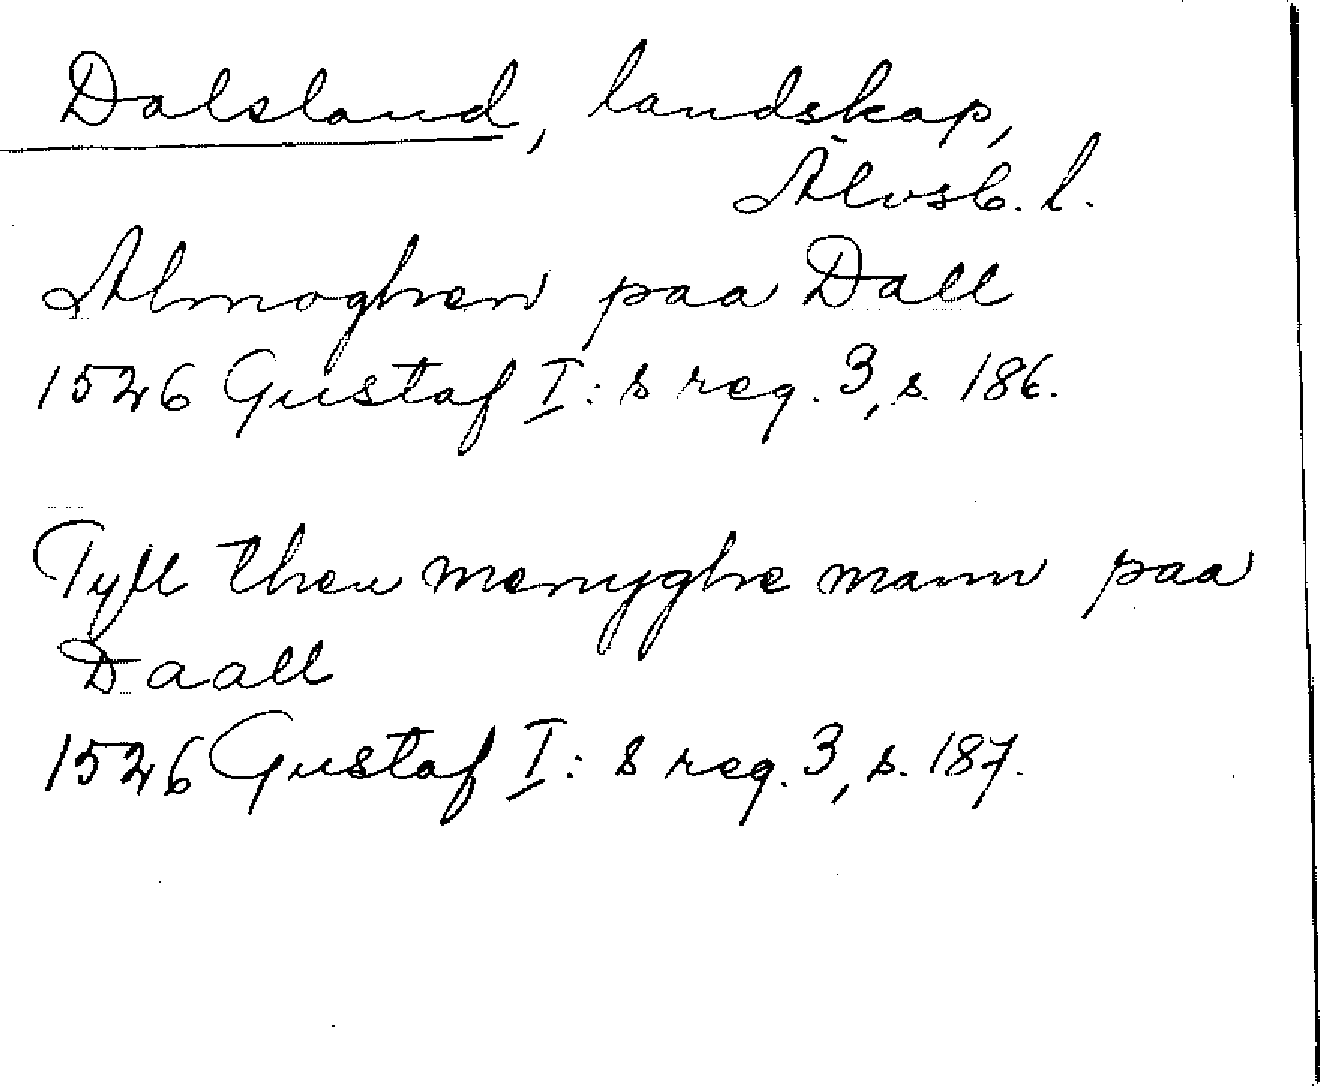 Dalsland, landskap,
Älvsb. l.
Almoghen paa Dall
1526 Gustaf I:s reg. 3, s. 186.
Tyll then menyghe mann paa
Daall
1526 Gustaf I:s reg. 3, s. 187.